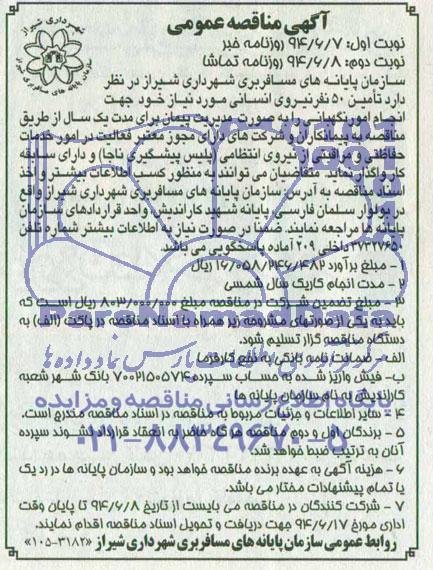 آگهی مناقصه عمومی
نوبت اول: ۹۴/۶/۷ روزنامه خبر
نوبت دوم: ۹۴/۶/۸ روزنامه تماشا
شهرداری شیراز
سازمان پایانه های مسافربری شیراز
سازمان پایانه های مسافربری شهرداری شیراز در نظر
دارد تأمین ۵۰ نفر نیروی انسانی مورد نیاز خود جهت
انجام امور نگهبانی را به صورت مدیریت پیمان برای مدت یک سال از طریق
مناقصه به پیمانکاران و شرکت های دارای مجوز معتبر فعالیت در امور خدمات
حفاظتی و مراقبتی از نیروی انتظامی (پلیس پیشگیری ناجا) و دارای سابقه
کار واگذار نماید. متقاضیان می توانند به منظور کسب اطلاعات بیشتر و اخذ
اسناد مناقصه به آدرس: سازمان پایانه های مسافربری شهرداری شیراز واقع
در بولوار سلمان فارسی پایانه شهید کاراندیش واحد قراردادهای سازمان
پایانه ها مراجعه نمایند. ضمناً در صورت نیاز به اطلاعات بیشتر شماره تلفن
۳۷۳۲۷۶۵۰ داخلی ۲۰۹ آماده پاسخگویی می باشد.
۱ - مبلغ برآورد ۱۶/۰۵۸/۲۴۶/۴۸۲ ریال
۲ - مدت انجام کار یک سال شمسی
۳ - مبلغ تضمین شرکت در مناقصه مبلغ ۸۰۳/۰۰۰/۰۰۰ ریال است که
باید به یکی از صورتهای مشروحه زیر همراه با اسناد مناقصه در پاکت (الف) به
دستگاه مناقصه گزار تسلیم شود.
الف - ضمانت نامه بانکی به نفع کارفرما
ب- فیش واریز شده به حساب سپرده ۷۰۰۲۱۵۰۵۷۴ بانک شهر شعبه
کاراندیش به نام سازمان پایانه ها
۴ - سایر اطلاعات و جزئیات مربوط به مناقصه در اسناد مناقصه مندرج است.
۵ - برندگان اول و دوم مناقصه هر گاه حاضر به انعقاد قرارداد نشوند سپرده
آنان به ترتیب ضبط خواهد شد.
۶ - هزینه آگهی به عهده برنده مناقصه خواهد بود و سازمان پایانه ها در رد یک
یا تمام پیشنهادات مختار می باشد.
۷ - شرکت کنندگان در مناقصه می بایست از تاریخ ۹۴/۶/۸ تا پایان وقت
اداری مورخ ۹۴/۶/۱۷ جهت دریافت و تحویل اسناد مناقصه اقدام نمایند.
روابط عمومی سازمان پایانه های مسافربری شهرداری شیراز «۳۱۸۲-۱۰۵»
ParsNamadData
پایگاه اطلاع رسانی مناقصه و مزایده
۰۲۱-۸۸۳۴۹۶۷۰-۵